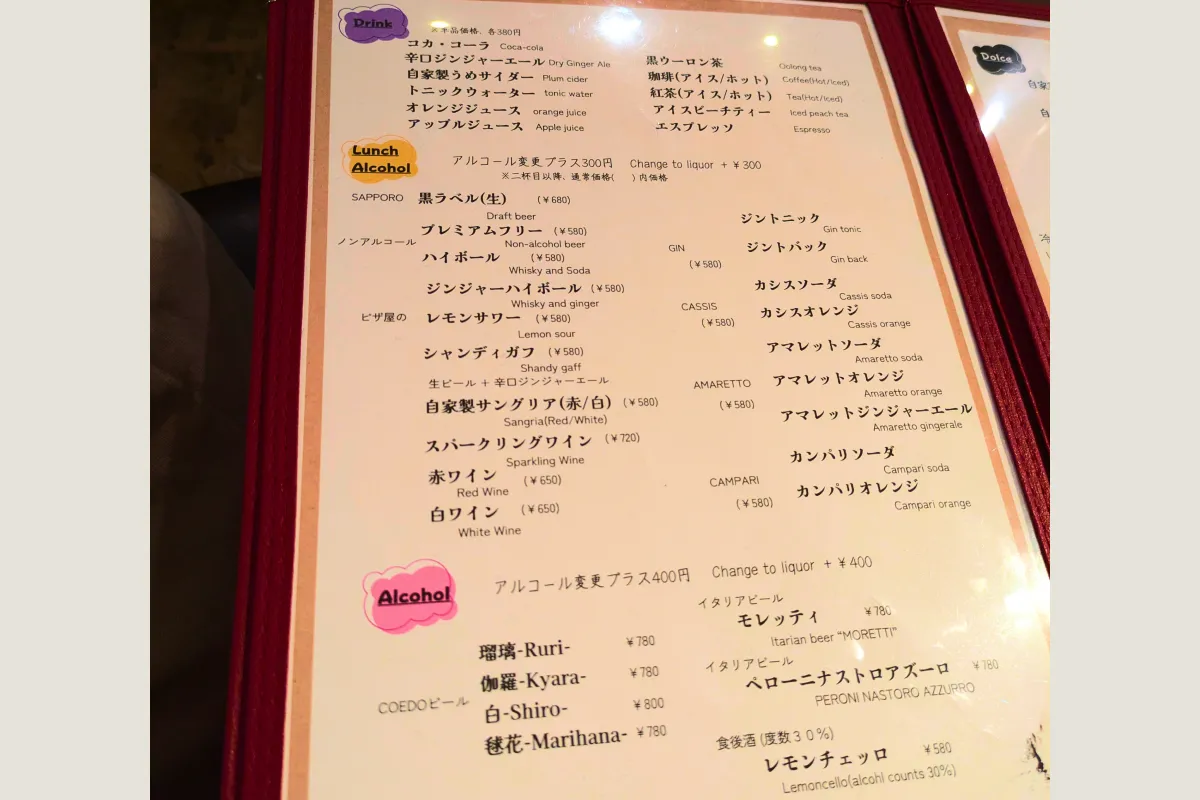 Drink
単品価格、各380円
コカ・コーラ Coca-cola
辛口ジンジャーエール Dry Ginger Ale
自家製うめサイダー Plum cider
トニックウォーター tonic water
オレンジジュース orange juice
アップルジュース Apple juice
黒ウーロン茶 Oolong tea
珈琲(アイス/ホット) Coffee(Hot/Iced)
紅茶(アイス/ホット) Tea(Hot/Iced)
アイスピーチティー Iced peach tea
エスプレッソ Espresso
Lunch
Alcohol
アルコール変更プラス300円 Change to liquor + ¥300
※二杯目以降、通常価格( )内価格
SAPPORO 黒ラベル(生) (¥680)
Draft beer
プレミアムフリー (¥580)
ノンアルコール Non-alcohol beer
ハイボール (¥580)
Whisky and Soda
ジンジャーハイボール (¥580)
Whisky and ginger
ピザ屋の レモンサワー (¥580)
Lemon sour
シャンディガフ (¥580)
Shandy gaff
生ビール + 辛口ジンジャーエール
自家製サングリア(赤/白) (¥580)
Sangria(Red/White)
スパークリングワイン (¥720)
Sparkling Wine
赤ワイン (¥650)
Red Wine
白ワイン (¥650)
White Wine
ジントニック
Gin tonic
GIN ジントバック
(¥580) Gin back
カシスソーダ
Cassis soda
CASSIS カシスオレンジ
(¥580) Cassis orange
アマレットソーダ
Amaretto soda
AMARETTO アマレットオレンジ
Amaretto orange
(¥580) アマレットジンジャーエール
Amaretto gingerale
カンパリソーダ
Campari soda
CAMPARI カンパリオレンジ
(¥580) Campari orange
Alcohol
アルコール変更プラス400円 Change to liquor + ¥400
瑠璃-Ruri- ¥780
伽羅-Kyara- ¥780
COEDOビール 白-Shiro- ¥800
毬花-Marihana- ¥780
イタリアビール
モレッティ ¥780
Itarian beer “MORETTI”
イタリアビール
ペローニナストロアズーロ ¥780
PERONI NASTORO AZZURRO
食後酒 (度数30%)
レモンチェッロ ¥580
Lemoncello(alcohl counts 30%)
Dolce
自家